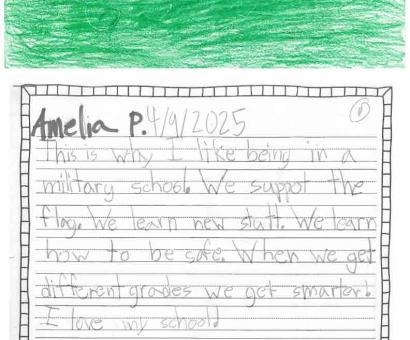 Amelia P. 4/9/2025
This is why I like being in a
military school. We suppot the
flag. We learn new stuff. We learn
how to be safe. When we get
different grades we get smarter!
I love my school!